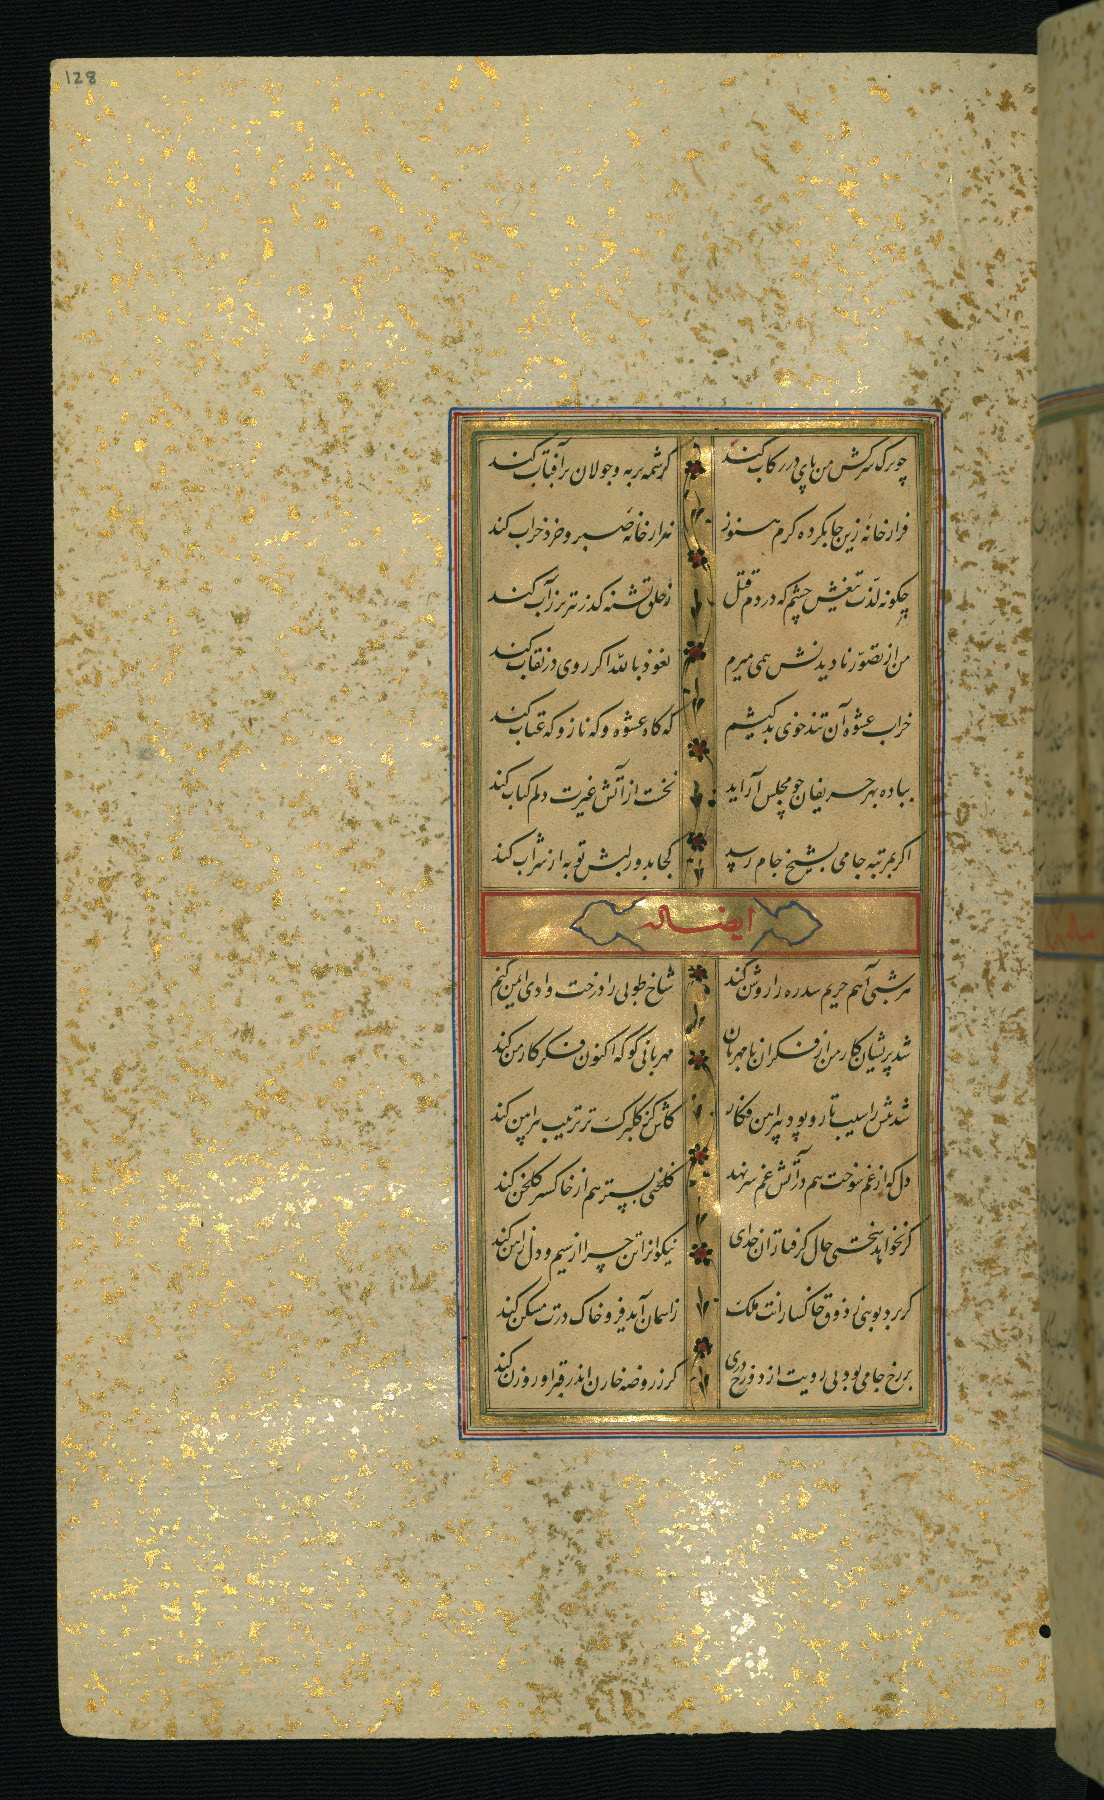 128
چو ترک سرکش من پای در رکاب کند کرشمه بر مه و جولان بر آفتاب کند
فراز خانهٔ زین جا نکرده گرم هنوز هزار خانهٔ صبر و خرد خراب کند
چگونه لذت تیغش چشم که در دم قتل ز حلق تشنه گذر تیزتر ز آب کند
من از تصوّر نادیدنش همی میرم نعوذ بالله اگر روی در نقاب کند
خراب عشوهٔ آن تندخوی بدکیشم که گاه عشوه و گه ناز و گه عتاب کند
بباده بهر حریفان چو مجلس آراید نخست از آتش غیرت دلم کباب کند
اگر بمرتبه جامی بشیخ جام رسد کجا بدور لبش توبه از شراب کند
ایضاله
هر شبی آهم حریم سدره را روشن کند شاخ طوبی را درخت وادی ایمن کند
شد پریشان کار من از فکر آن نامهربان مهربانی کو که اکنون فکر کار من کند
شد تنش را سیب تار و پود پیراهن فکار کاش کز گلبرگ تر ترتیب پیراهن کند
دل که از غم سوخت هم در آتش غم سر نهد گلخنی بستر هم از خاکستر گلخن کند
گر نخواهد سختی حال گرفتاران خدای نیکوانرا تن چرا از سیم و دل ز آهن کند
گر برد بویی ز ذوق خاکسارانت ملک ز آسمان آید فرو خاک درت مسکن کند
بر رخ جامی بود بی رویت از دوزخ دری گر ز روضه خازن اندر قبر او روزن کند